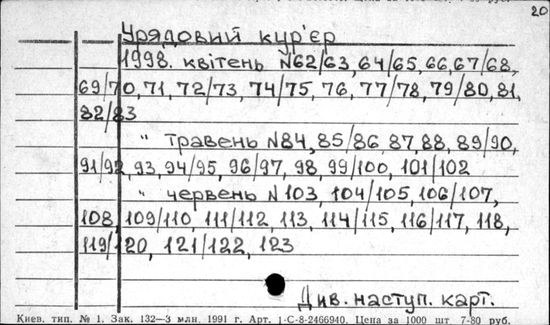 20
Урядовий кур'єр
1998. квітень N62/63, 64/65, 66, 67/68,
69/70, 71, 72/73, 74/75, 76, 77/78, 79/80, 81,
82/83
" травень N84, 85/86, 87, 88, 89/90,
91/92, 93, 94/95, 96/97, 98, 99/100, 101/102
" червень N103, 104/105, 106/107,
108, 109/110, 111/112, 113, 114/115, 116/117, 118,
119/120, 121/122, 123
Див. наступ. карт.
Киев. тип. № 1. Зак. 132—3 млн. 1991 г. Арт. 1-С-8-2466940. Цена за 1000 шт 7-80 руб.